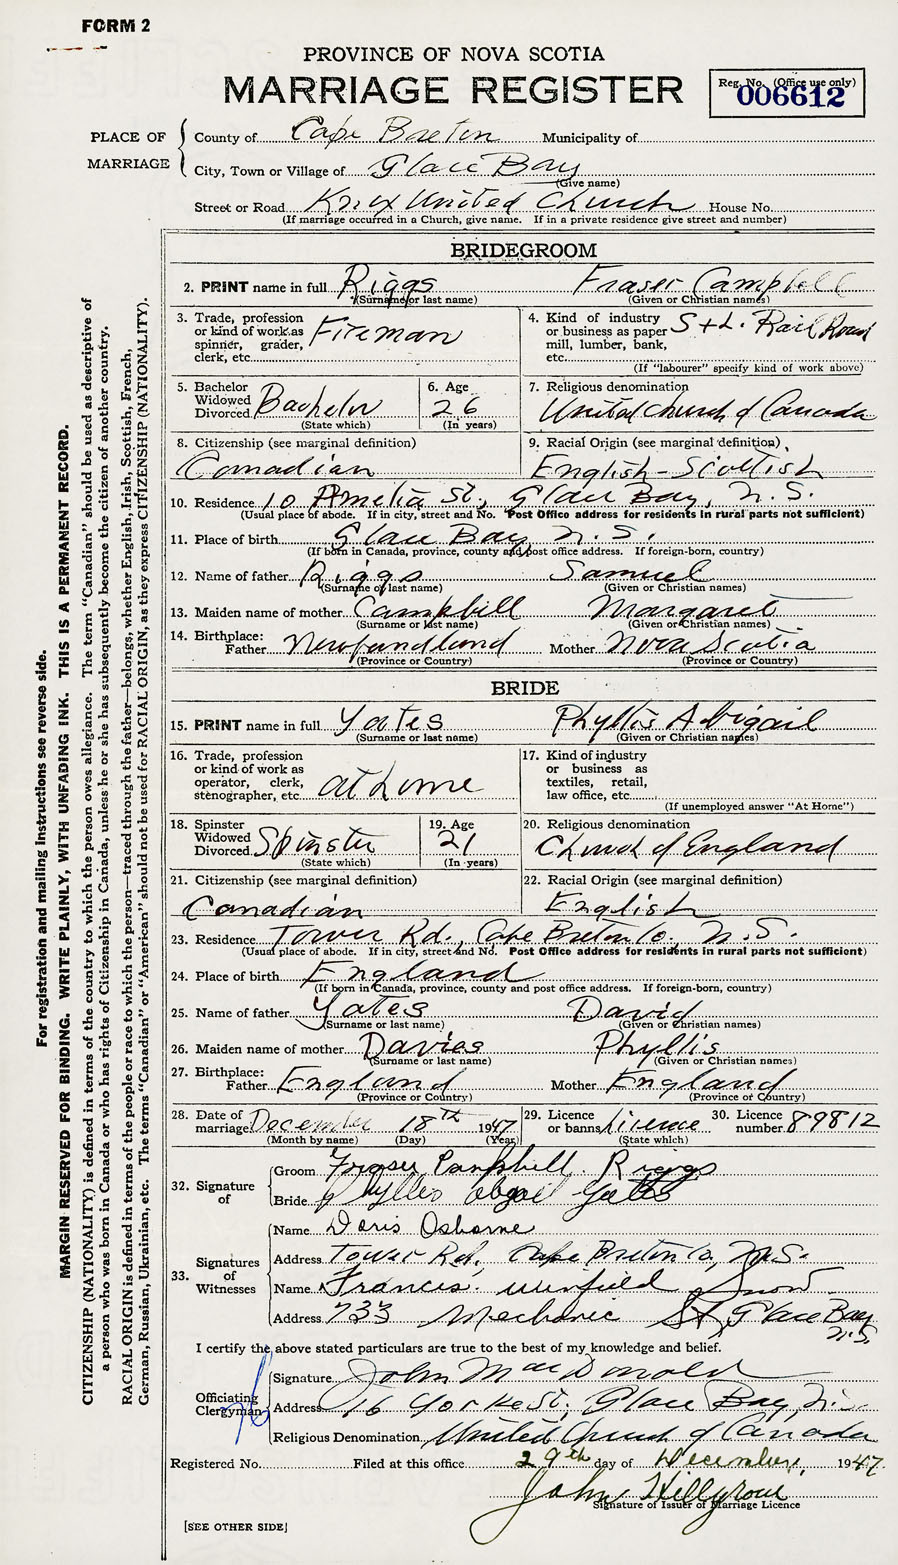 FORM 2
PROVINCE OF NOVA SCOTIA
MARRIAGE REGISTER
Reg. No. (Office use only)
006612
PLACE OF MARRIAGE
County of Cape Breton Municipality of
City, Town or Village of Glace Bay
(Give name)
Street or Road Knox United Church House No.
(If marriage occurred in a Church, give name. If in a private residence give street and number)
BRIDEGROOM
2. PRINT name in full Riggs Fraser Campbell
(Surname or last name) (Given or Christian names)
3. Trade, profession or kind of work as spinner, grader, clerk, etc. Fireman
4. Kind of industry or business as paper mill, lumber, bank, etc. S & L. Rail Road
(If "labourer" specify kind of work above)
5. Bachelor Widowed Divorced Bachelor
(State which)
6. Age 26
(In years)
7. Religious denomination
United Church of Canada
8. Citizenship (see marginal definition)
Canadian
9. Racial Origin (see marginal definition)
English-Scottish
10. Residence 10 Amelia St., Glace Bay, N.S.
(Usual place of abode. If in city, street and No. Post Office address for residents in rural parts not sufficient)
11. Place of birth Glace Bay N.S.
(If born in Canada, province, county and post office address. If foreign-born, country)
12. Name of father Riggs Samuel
(Surname or last name) (Given or Christian names)
13. Maiden name of mother Campbell Margaret
(Surname or last name) (Given or Christian names)
14. Birthplace:
Father Newfoundland Mother Nova Scotia
(Province or Country) (Province or Country)
BRIDE
15. PRINT name in full Yates Phyllis Abigail
(Surname or last name) (Given or Christian names)
16. Trade, profession or kind of work as operator, clerk, stenographer, etc. at home
17. Kind of industry or business as textiles, retail, law office, etc.
(If unemployed answer "At Home")
18. Spinster Widowed Divorced Spinster
(State which)
19. Age 21
(In years)
20. Religious denomination
Church of England
21. Citizenship (see marginal definition)
Canadian
22. Racial Origin (see marginal definition)
English
23. Residence Tower Rd., Cape Breton Co. N.S.
(Usual place of abode. If in city, street and No. Post Office address for residents in rural parts not sufficient)
24. Place of birth England
(If born in Canada, province, county and post office address. If foreign-born, country)
25. Name of father Yates David
(Surname or last name) (Given or Christian names)
26. Maiden name of mother Davies Phyllis
(Surname or last name) (Given or Christian names)
27. Birthplace:
Father England Mother England
(Province or Country) (Province or Country)
28. Date of marriage December 18th 1947
(Month by name) (Day) (Year)
29. Licence or banns licence
(State which)
30. Licence number 89812
32. Signature of
Groom Fraser Campbell Riggs
Bride Phyllis Abigail Yates
33. Signatures of Witnesses
Name Doris Osborne
Address Tower Rd., Cape Breton Co, N.S.
Name Francis Winfield Snow
Address 733 Mechanic St, Glace Bay
N.S.
I certify the above stated particulars are true to the best of my knowledge and belief.
Officiating Clergyman
Signature John MacDonald
Address 16 Yorke St, Glace Bay, N.S.
Religious Denomination United Church of Canada
Registered No. Filed at this office 29th day of December, 1947.
John Hillgrove
Signature of Issuer of Marriage Licence
[SEE OTHER SIDE]
For registration and mailing instructions see reverse side.
MARGIN RESERVED FOR BINDING. WRITE PLAINLY, WITH UNFADING INK. THIS IS A PERMANENT RECORD.
CITIZENSHIP (NATIONALITY) is defined in terms of the country to which the person owes allegiance. The term "Canadian" should be used as descriptive of
a person who was born in Canada or who has rights of Citizenship in Canada, unless he or she has subsequently become the citizen of another country.
RACIAL ORIGIN is defined in terms of the people or race to which the person—traced through the father—belongs, whether English, Irish, Scottish, French,
German, Russian, Ukrainian, etc. The terms "Canadian" or "American" should not be used for RACIAL ORIGIN, as they express CITIZENSHIP (NATIONALITY).